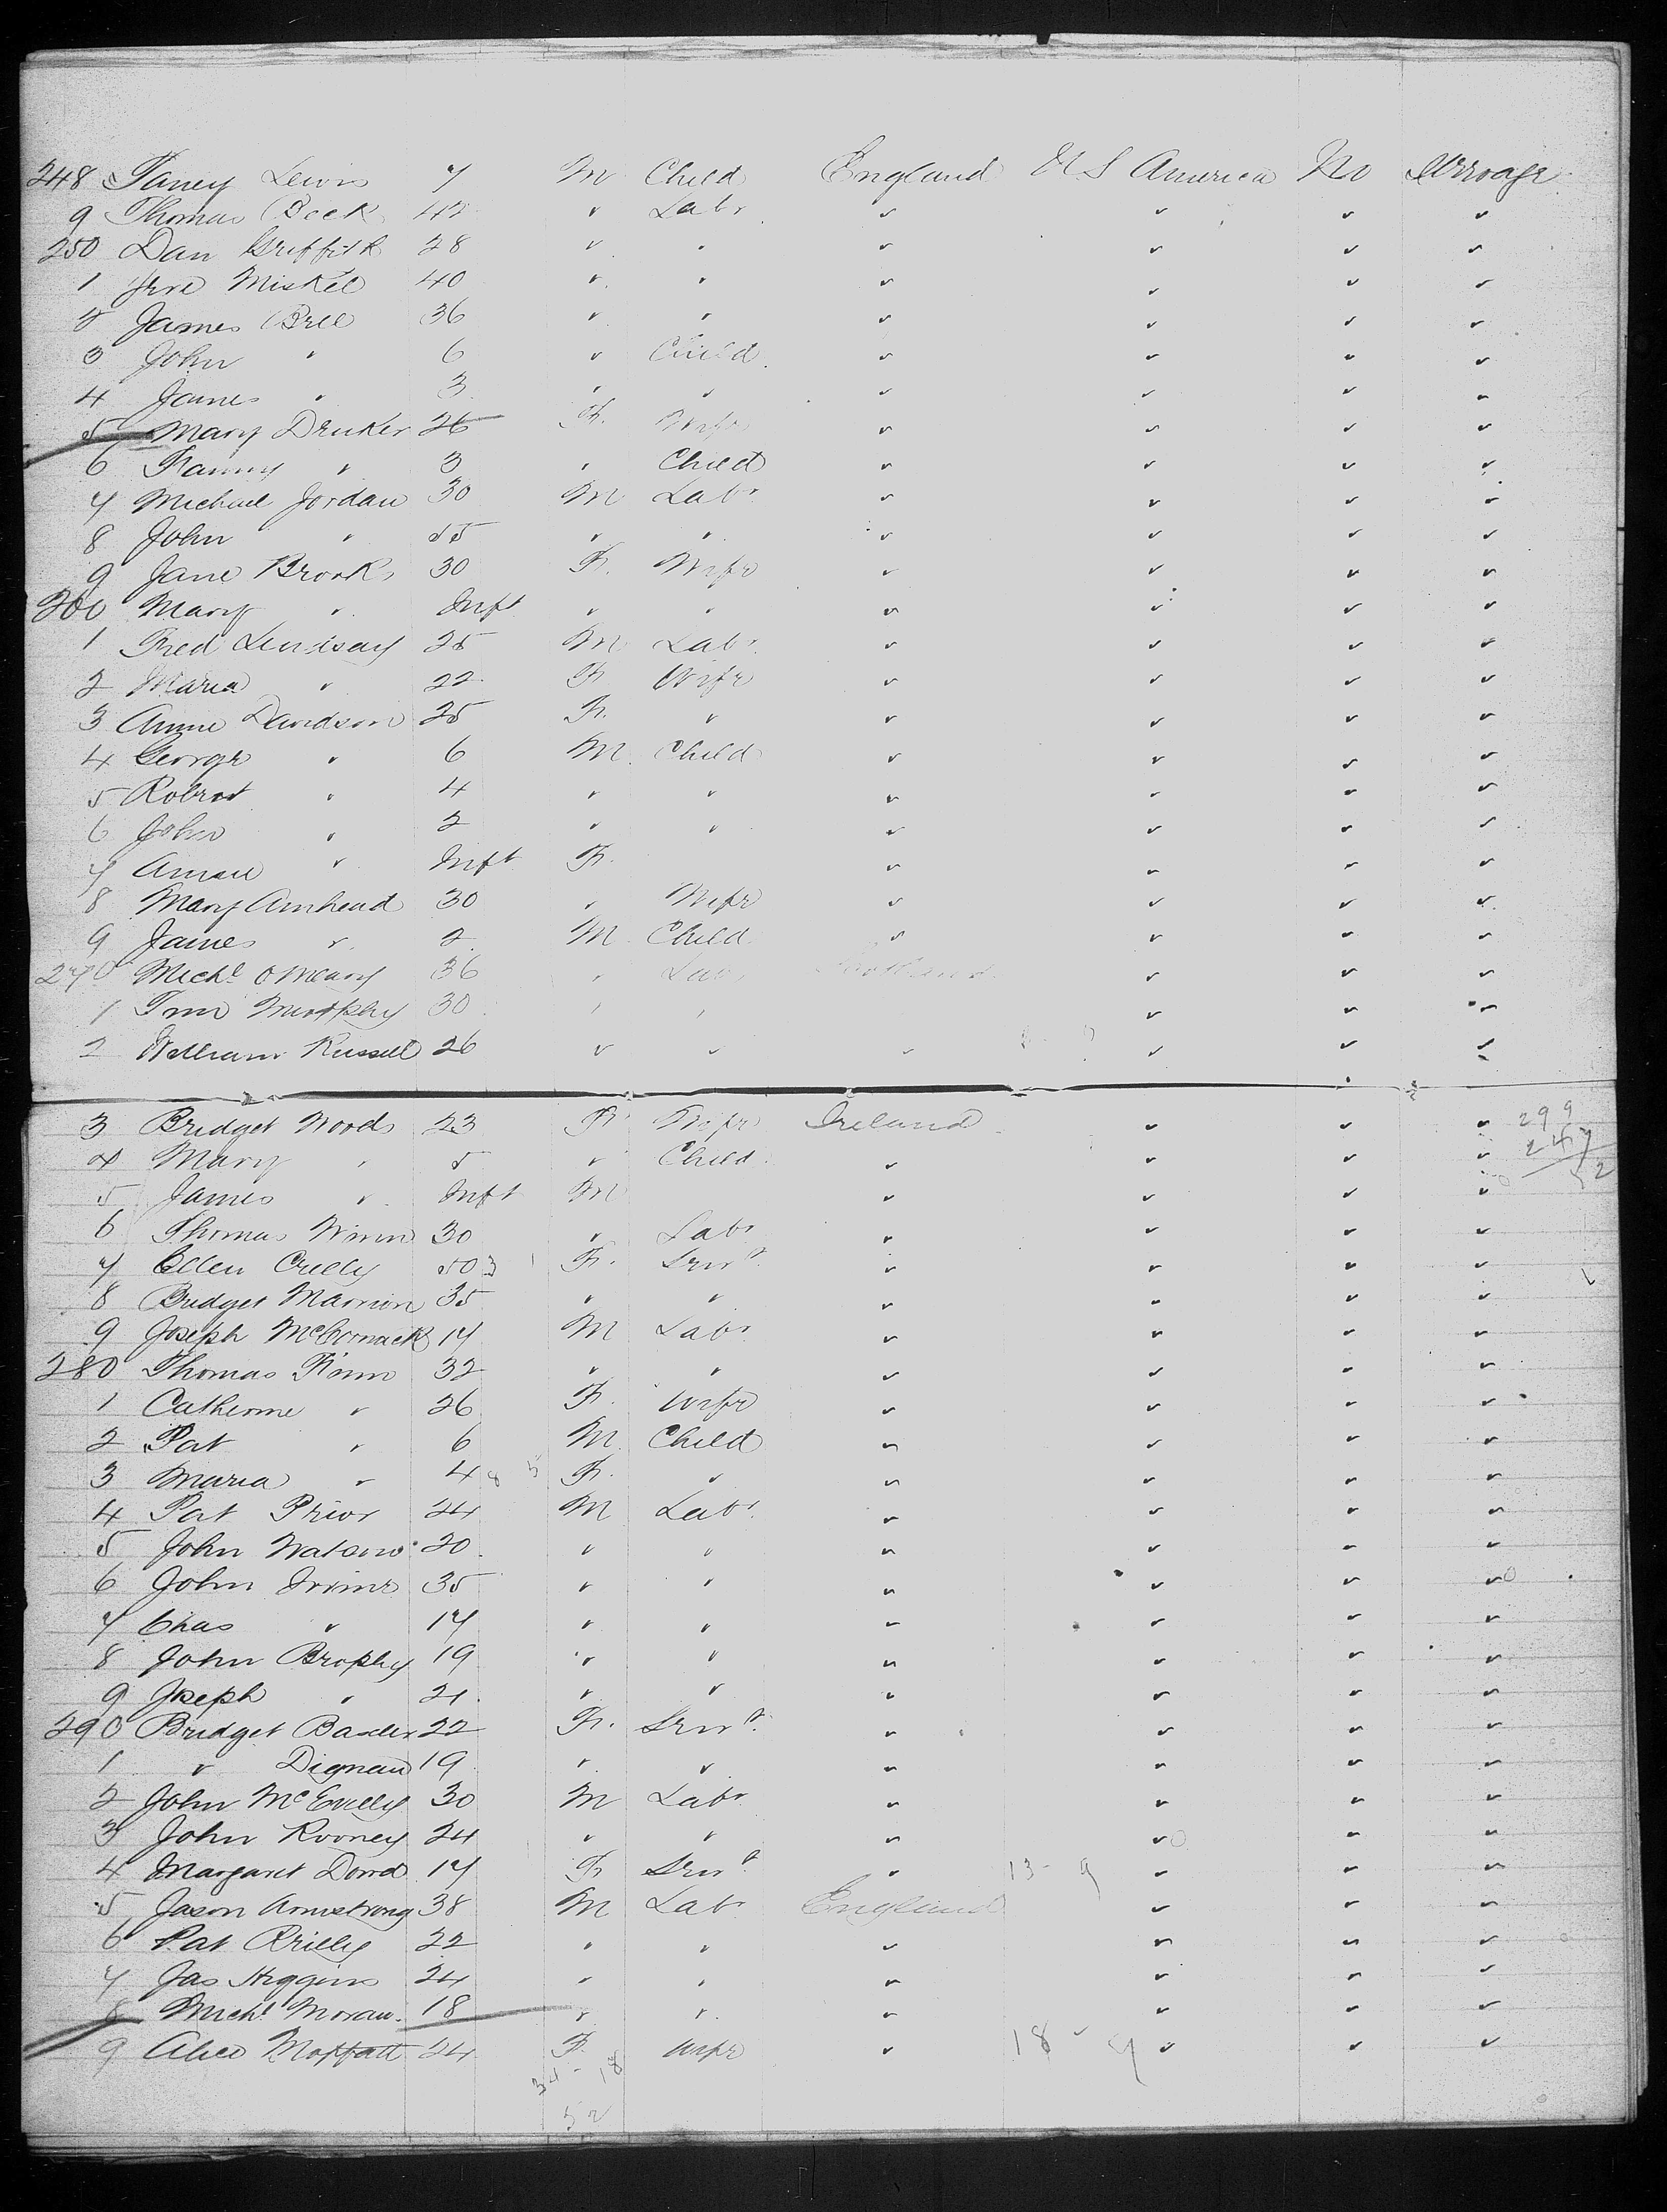 248 Taney Lewis 7 M Child England U S America No
9 Thomas Beck 42 " Labr " " " "
250 Dan Griffith 28 " " " " " "
1 Jere Miskel 40 " " " " " "
2 James Bell 36 " " " " " "
3 John " 6 " Child " " " "
4 James " 3 " " " " " "
5 Mary Druker 26 F. Wife " " " "
6 Fanny " 3 " Child " " " "
7 Michael Jordan 30 M Labr " " " "
8 John " 55 " " " " " "
9 Jane Brooks 30 F. Wife " " " "
260 Mary " Inft " " " " " "
1 Fred Lindsay 25 M Labr " " " "
2 Maria " 22 F Wife " " " "
3 Annie Davidson 25 F. " " " " "
4 George " 6 M. Child " " " "
5 Robert " 4 " " " " " "
6 John " 2 " " " " " "
7 " Inft F. " " " "
8 Mary Amhead 30 " Wife " " " "
9 James " 2 M Child " " " "
270 Michl O'Meary 36 " Labr Scotland " " "
1 Tim Murphy 30 " " " " "
2 William Russell 26 " " " " " "
3 Bridget Woods 23 F Wife Ireland " " " 299
4 Mary " 5 " Child " " " " 247
5 James " Inft M " " " " 52
6 Thomas Winn 30 " Labr " " " "
7 Ellen Crelly 50 3 F. Servt " " " "
8 Bridget Marrion 35 " " " " " "
9 Joseph McCormack 17 M Labr " " " "
280 Thomas Finn 32 " " " " " "
1 Catherine " 26 F. Wife " " " "
2 Pat " 6 M. Child " " " "
3 Maria " 4 8 5 F. " " " " "
4 Pat Prior 24 M Labr " " " "
5 John Watson 20 " " " " " "
6 John Irvine 35 " " " " " "
7 Chas " 17 " " " " " "
8 John Brophy 19 " " " " " "
9 Joseph " 21 " " " " " "
290 Bridget Baxter 22 F. Servt " " " "
1 " Dignan 19 " " " " " "
2 John McEvilly 30 M Labr " " " "
3 John Rooney 24 " " " " " "
4 Margaret Dowd 17 F Servt " 13 - 9 " " "
5 Jason Armstrong 38 M Labr England " " "
6 Pat Reilly 22 " " " " " "
7 Jas Higgins 24 " " " " " "
8 Michl Moran 18 " " " " " "
9 Alice Moffatt 24 F. Wife " 18 - 7 " " "
34 - 18
52